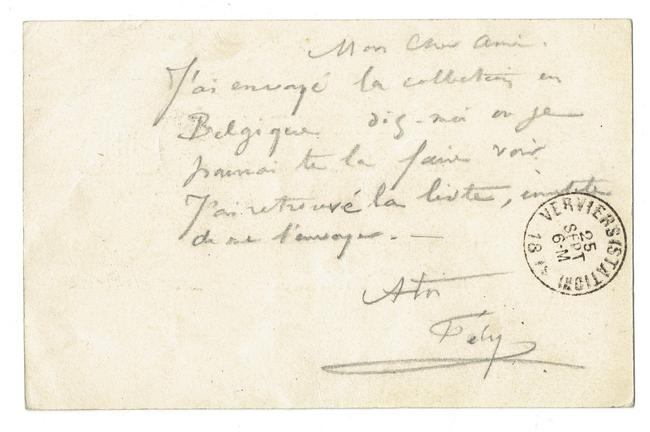 Mon cher ami.
J'ai envoyé la collection en
Belgique dis-moi où je
pourrai te la faire voir
J'ai retrouvé la liste, inutile
de me l'envoyer. —
A toi
VERVIERS (STATION)
25
SEPT
6-M
18